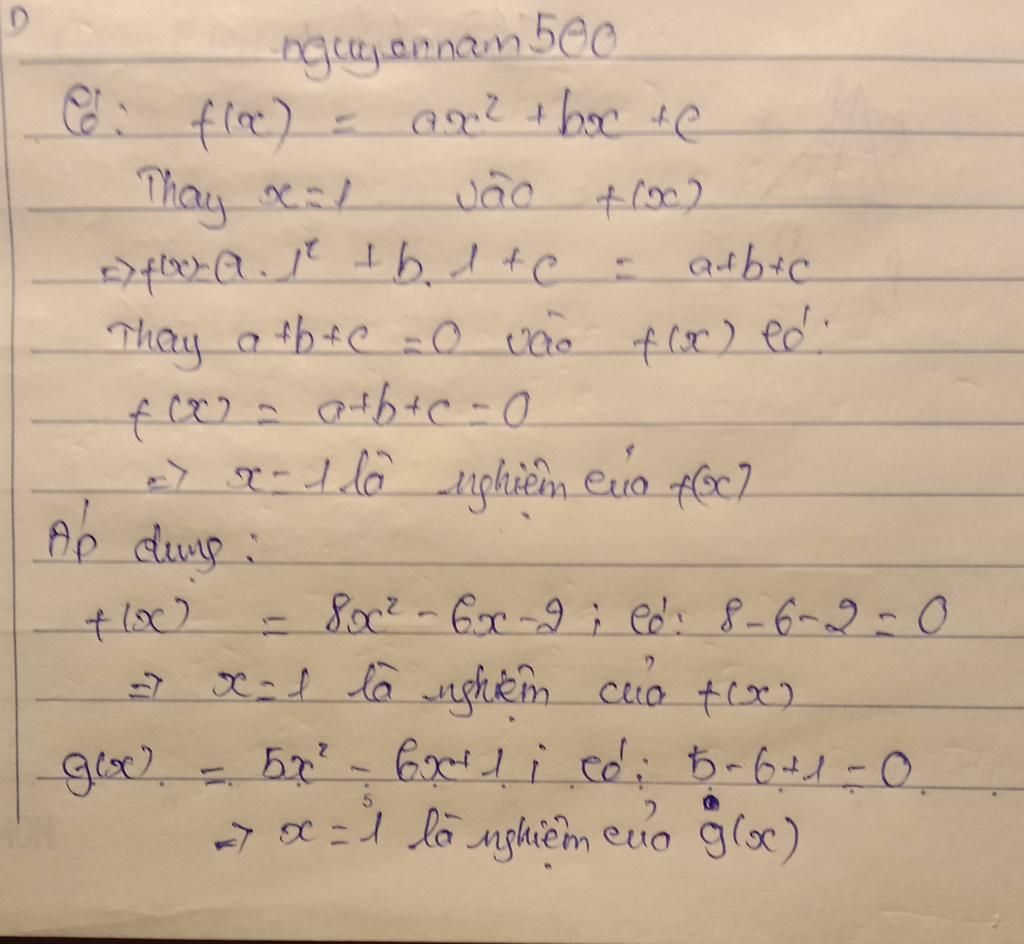 nguyennam500
Có: f(x) = ax² + bx + c
Thay x=1 vào f(x)
=> f(x)=a.1² + b.1 + c = a+b+c
Thay a+b+c =0 vào f(x) có:
f(x) = a+b+c=0
=> x=1 là nghiệm của f(x)
Áp dụng:
f(x) = 8x² - 6x - 2; có: 8-6-2=0
=> x=1 là nghiệm của f(x)
g(x) = 5x² - 6x+1; có: 5-6+1=0
=> x=1 là nghiệm của g(x)